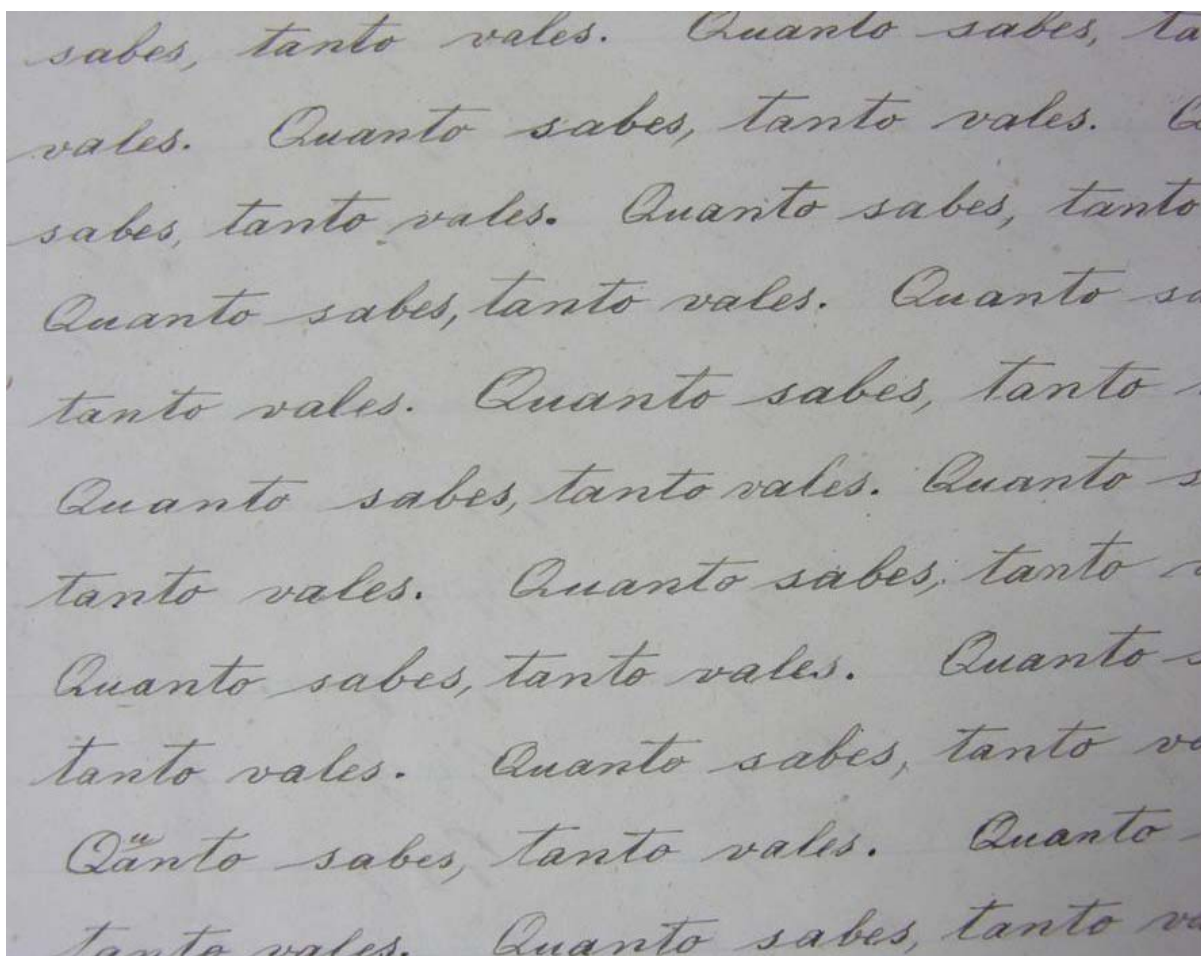 sabes, tanto vales. Quanto sabes, ta
vales. Quanto sabes, tanto vales. Q
sabes, tanto vales. Quanto sabes, tanto
Quanto sabes, tanto vales. Quanto sa
tanto vales. Quanto sabes, tanto
Quanto sabes, tanto vales. Quanto s
tanto vales. Quanto sabes, tanto v
Quanto sabes, tanto vales. Quanto s
tanto vales. Quanto sabes, tanto va
Quanto sabes, tanto vales. Quanto
tanto vales. Quanto sabes, tanto va